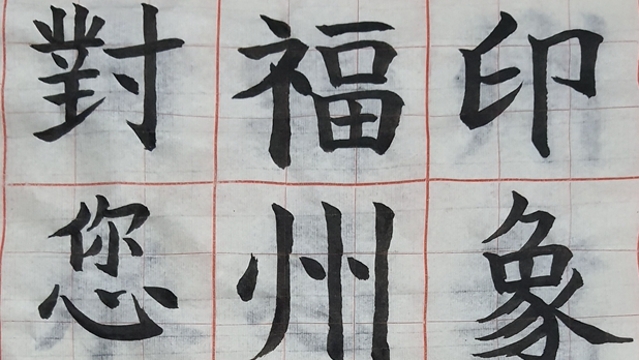 印象
福州
對您